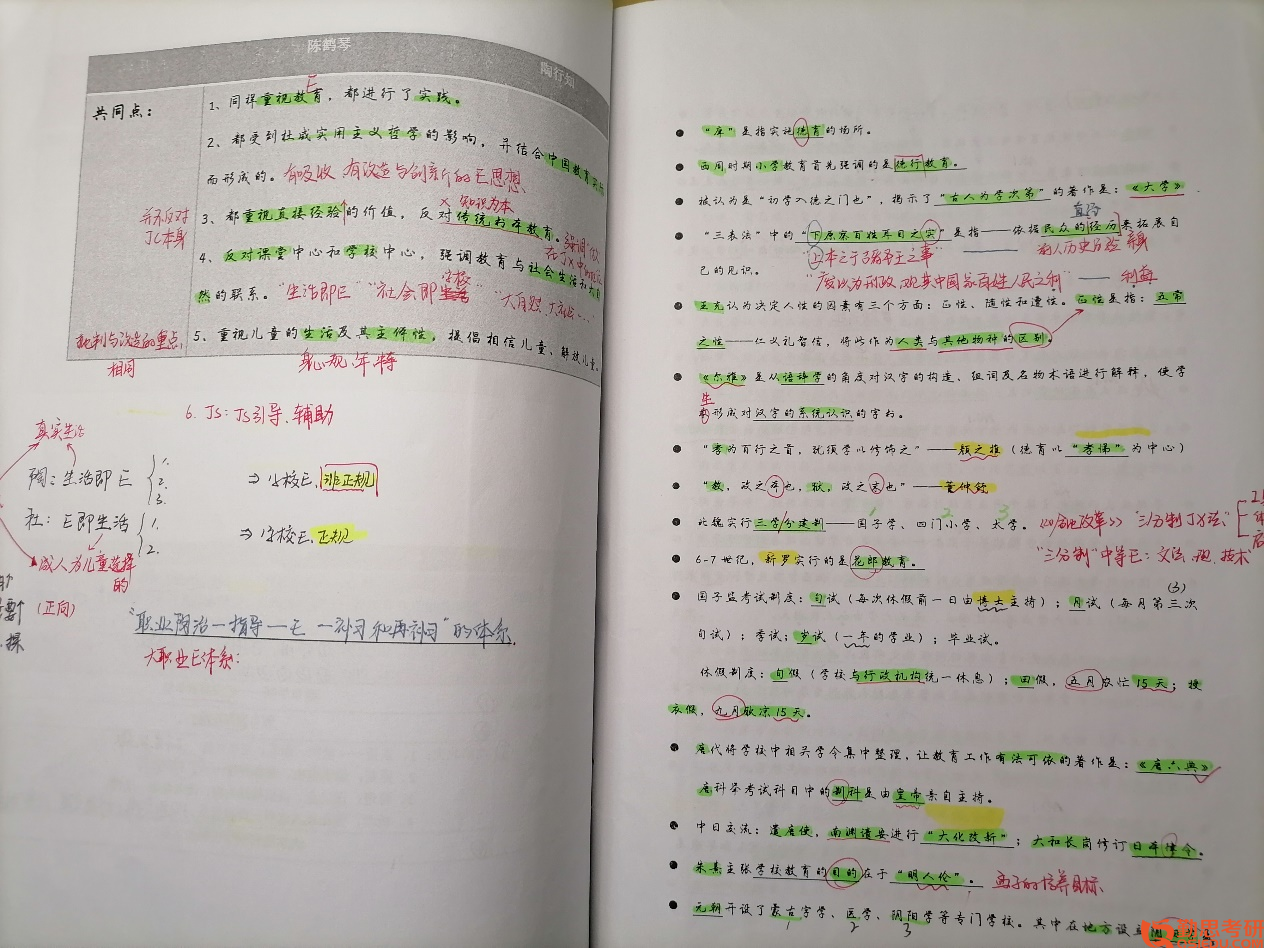 陈鹤琴
陶行知
共同点：
1、同样重视教育，都进行了实践。
E
2、都受到杜威实用主义哲学的影响，并结合中国教育实
而形成的。有吸收、有改造与创新的E思想
并不反对
JC本身
× 知识为本
3、都重视直接经验的价值，反对传统书本教育。强调"做
4、反对课堂中心和学校中心，强调教育与社会生活和大自
学校
然的联系。"生活即E" "社会即" "大自然、大社会……
批判与改造的重点
相同
5、重视儿童的生活及其主体性，提倡相信儿童、解放儿童。
身心规、年特
6. JS：JS引导、辅助
真实生活
陶：生活即E
1.
2.
3.
⇒ 学校E、非正规
杜：E即生活
1.
2.
⇒ 学校E、正规
成人为儿童选择
的
(正向)
"职业陶冶—指导—E—补习和再补习"的体系.
大职业E体系：
● "庠"是指实施德育的场所。
● 西周时期小学教育首先强调的是德行教育。
● 被认为是"初学入德之门也"，揭示了"古人为学次第"的著作是：《大学》
直接
● "三表法"中的"下原察百姓耳目之实"是指——依据民众的经历来拓展自
己的见识。
"上本之于古者圣王之事" 前人历史历经
"废以为刑政，观其中国家百姓人民之利" —— 利益
● 王充认为决定人性的因素有三个方面：正性、随性和遭性。正性是指：五常
之性——仁义礼智信，将此作为人类与其他物种的区别。
● 《尔雅》是从语辞学的角度对汉字的构造、组词及名物术语进行解释，使学
生
形成对汉字的系统认识的字书。
● "孝为百行之首，犹须学以修饰之"——颜之推（德育以"孝悌"为中心）
● "教，政之本也，狱，政之末也"——董仲舒
1 2 3
● 北魏实行三学分建制——国子学、四门小学、太学。"三分制"
"三分制"中等E：文法、现、技术
● 6-7世纪，新罗实行的是花郎教育。
● 国子监考试制度：旬试（每次休假前一日由博士主持）；月试（每月第三次
(3)
旬试）；季试；岁试（一年的学业）；毕业试。
休假制度：旬假（学校与行政机构统一休息）；田假，五月农忙15天；授
衣假，九月秋凉15天。
● 唐代将学校中相关学令集中整理，让教育工作有法可依的著作是：《唐六典》
唐科举考试科目中的制科是由皇帝亲自主持。
● 中日交流：遣唐使，南渊请安进行"大化改新"；大和长岗修订日本律令。
● 朱熹主张学校教育的目的在于"明人伦"。孟子的培养目标
● 元朝开设了蒙古字学、医学、阴阳学等专门学校。其中在地方设立
1 2 3
勤思考研